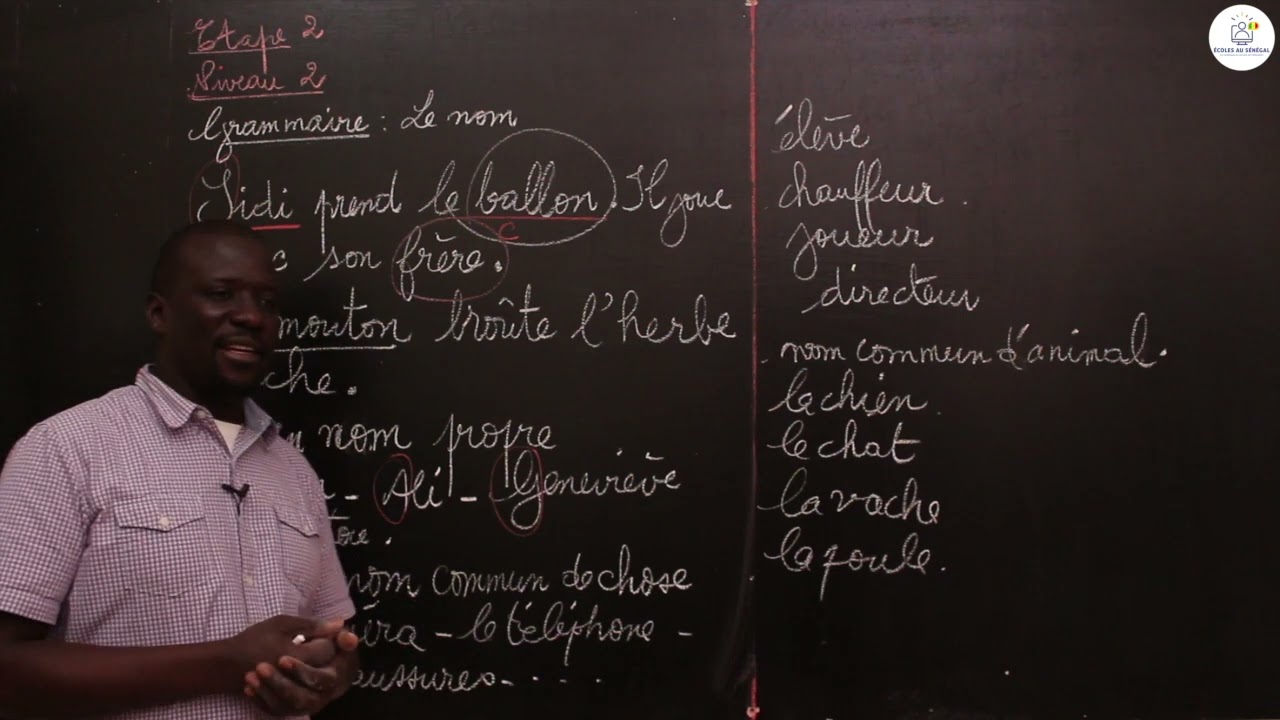 Etape 2
Niveau 2
Grammaire : Le nom
Sidi prend le ballon. Il joue
c
son frère.
mouton broûte l'herbe
che.
nom propre
- Ali - Geneviève
nom commun de chose
éra - le téléphone -
aussures - . . . .
élève
chauffeur.
joueur
directeur
nom commun d'animal.
le chien.
le chat
la vache
la poule.
ÉCOLES AU SÉNÉGAL